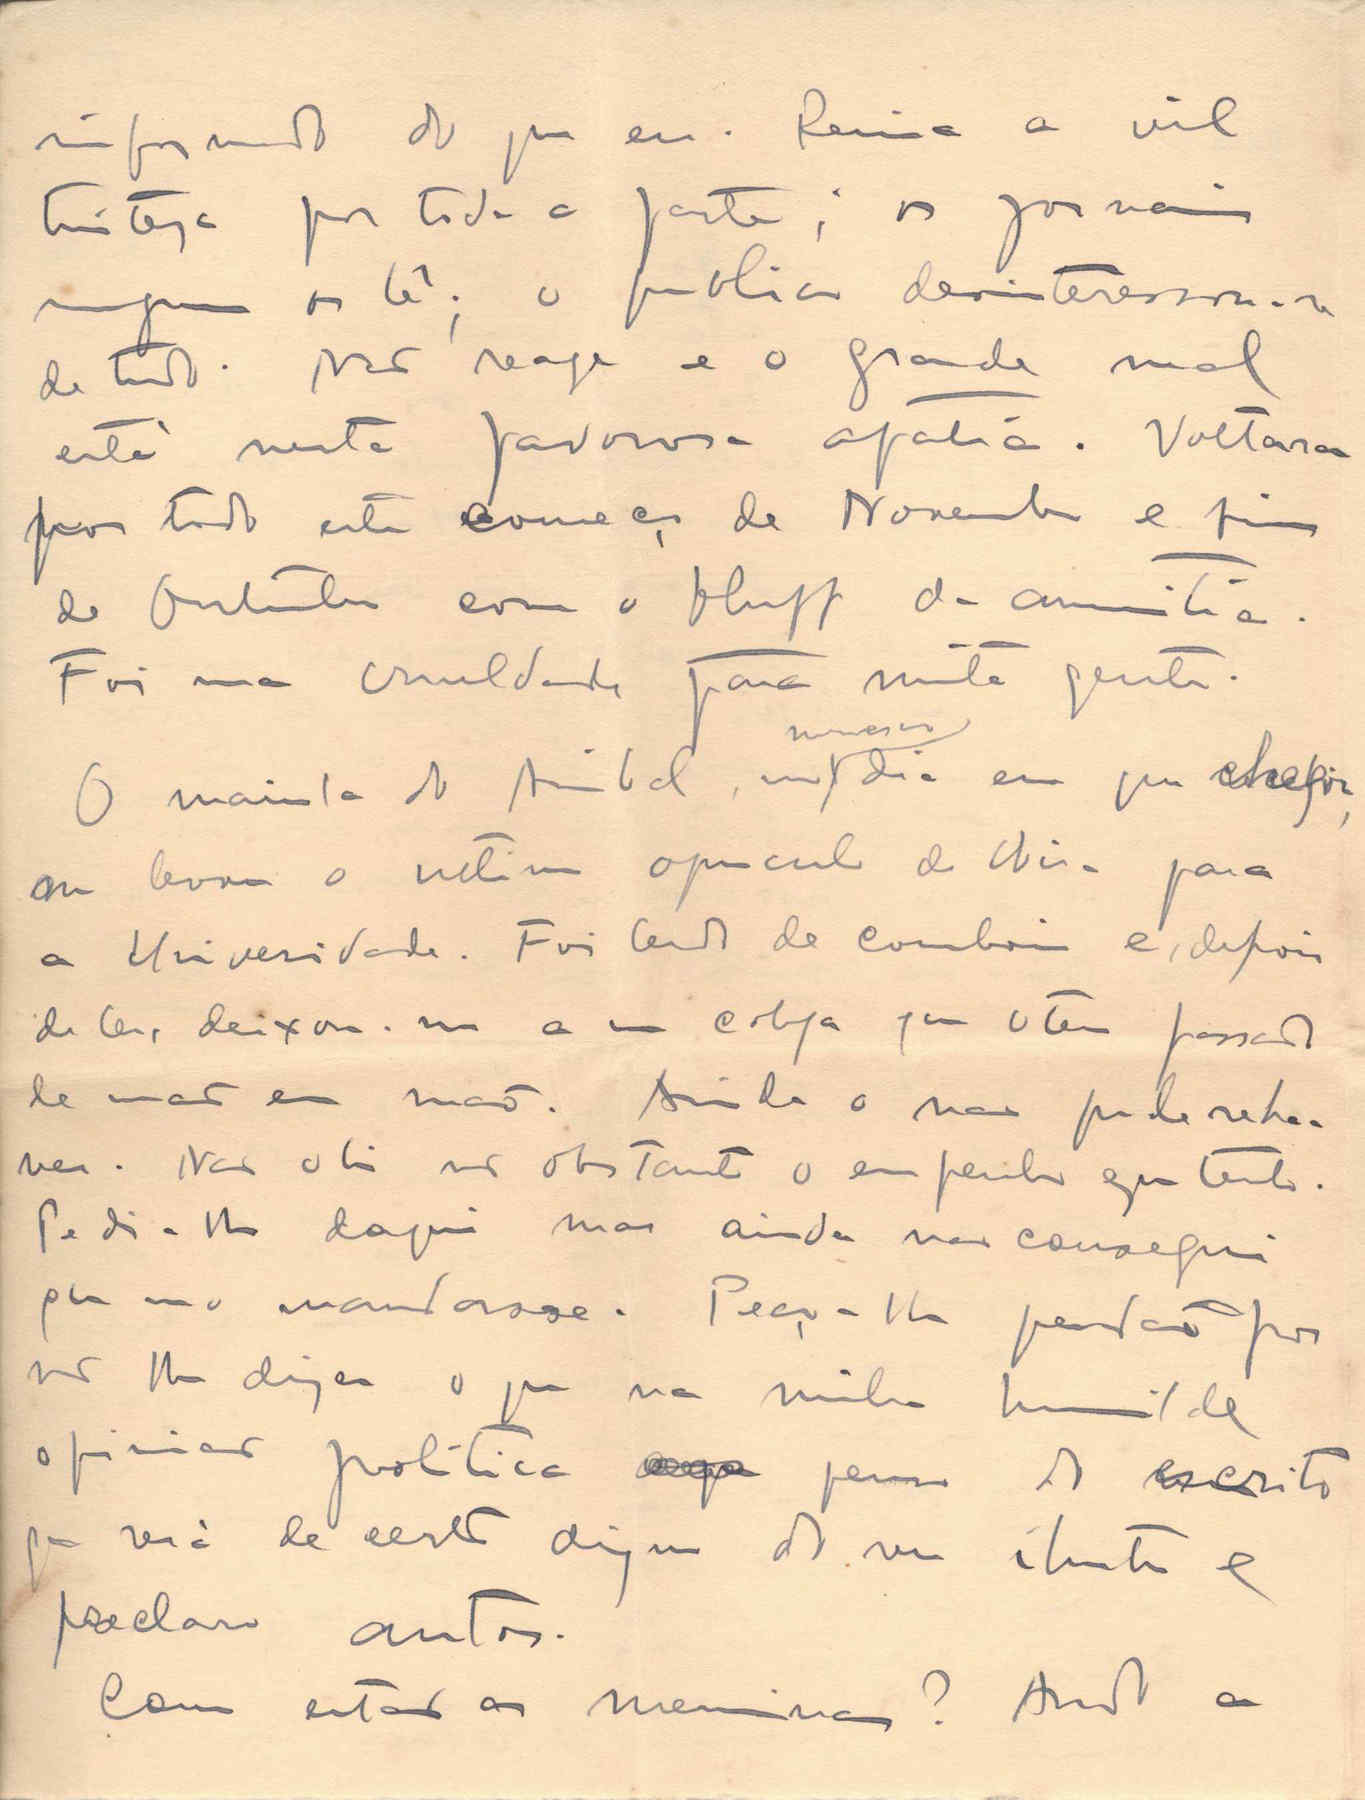 informado do que eu. Reina a vil
tristeza por toda a parte; os jornais
ninguem os lê; o publico desinteressou-se
de tudo. Não reage e o grande mal
está nesta pavorosa apatia. Voltaram
por todo este começo de Novembro e fim
de Outubro com o bluff da amnistia.
Foi uma crueldade para muita gente.
O mariola do Anibal, no mesmo dia em que chegou,
me levou o ultimo opusculo de para
a Universidade. Foi lendo de comboio e, depois
de ler, deixou-me a um colega que o tem passado
de mão em mão. Ainda o não pude rehaver
ver. Não o li não obstante o empenho que tenho.
Pedi-lho daqui mas ainda não consegui
que mo mandasse. Peço-lhe perdão por
não lhe dizer o que na minha humilde
opinião política penso do escrito
que será de certo digno do seu ilustre e
preclaro autor.
Como estão as meninas? Ando a